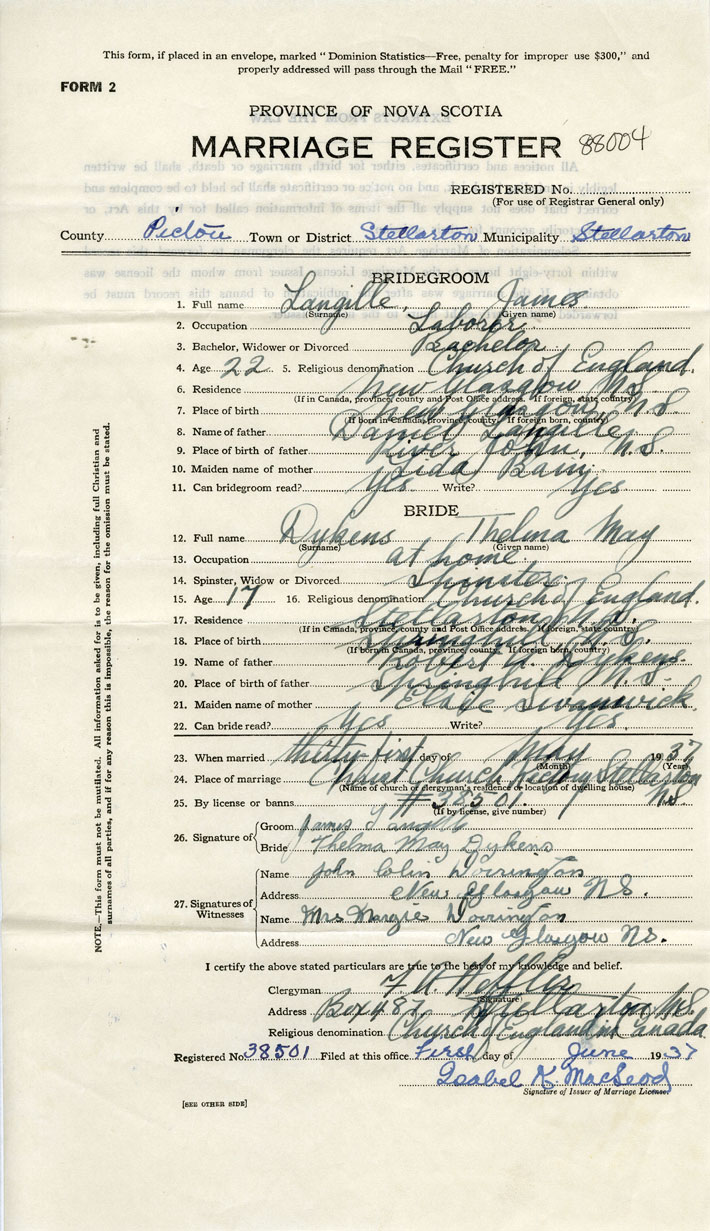 This form, if placed in an envelope, marked "Dominion Statistics—Free, penalty for improper use $300," and
properly addressed will pass through the Mail "FREE."
FORM 2
PROVINCE OF NOVA SCOTIA
MARRIAGE REGISTER 88004
REGISTERED No.
(For use of Registrar General only)
County Pictou Town or District Stellarton Municipality Stellarton
BRIDEGROOM
1. Full name Langille, James
(Surname) (Given name)
2. Occupation Laborer
3. Bachelor, Widower or Divorced Bachelor
4. Age 22 5. Religious denomination Church of England.
6. Residence New Glasgow N.S.
(If in Canada, province, county and Post Office address. If foreign, state country)
7. Place of birth New Glasgow N.S.
(If born in Canada, province, county. If foreign born, country)
8. Name of father Daniel Langille
9. Place of birth of father River John, N.S.
10. Maiden name of mother
11. Can bridegroom read? Yes Write? Yes
BRIDE
12. Full name Dykens Thelma May
(Surname) (Given name)
13. Occupation at home
14. Spinster, Widow or Divorced Spinster
15. Age 17 16. Religious denomination Church of England.
17. Residence Stellarton N.S.
(If in Canada, province, county and Post Office address. If foreign, state country)
18. Place of birth Springhill N.S.
(If born in Canada, province, county. If foreign born, country)
19. Name of father Robert Dykens.
20. Place of birth of father Springhill N.S.
21. Maiden name of mother Swanwick.
22. Can bride read? Yes Write? Yes.
23. When married thirty-first day of May 1937
(Month) (Year)
24. Place of marriage Christ Church Rectory Stellarton
(Name of church or clergyman's residence or location of dwelling house)
N.S.
25. By license or banns #38501.
(If by license, give number)
26. Signature of
Groom James Langille
Bride Thelma May Dykens
27. Signatures of Witnesses
Name John Colin Dorrington
Address New Glasgow N.S.
Name Mrs Margie Dorrington
Address New Glasgow N.S.
I certify the above stated particulars are true to the best of my knowledge and belief.
Clergyman
(Signature)
Address Box 487, Stellarton N.S.
Religious denomination Church of England in Canada
Registered No. 38501 Filed at this office First day of June 1937
Isabel K. MacLeod
Signature of Issuer of Marriage Licenses
[SEE OTHER SIDE]
NOTE.—This form must not be mutilated. All information asked for is to be given, including full Christian and
surnames of all parties, and if for any reason this is impossible, the reason for the omission must be stated.